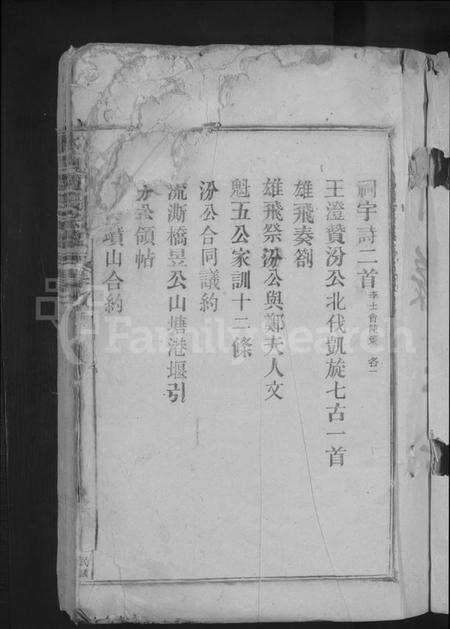 祠宇詩二首 李士會 各一
王澄贊汾公北伐凱旋七古一首
雄飛奏劄
雄飛祭汾公與鄭夫人文
魁五公家訓十二條
汾公合同議約
流澌橋昱公山塘港堰引
公領帖
墳山合約
FamilySearch